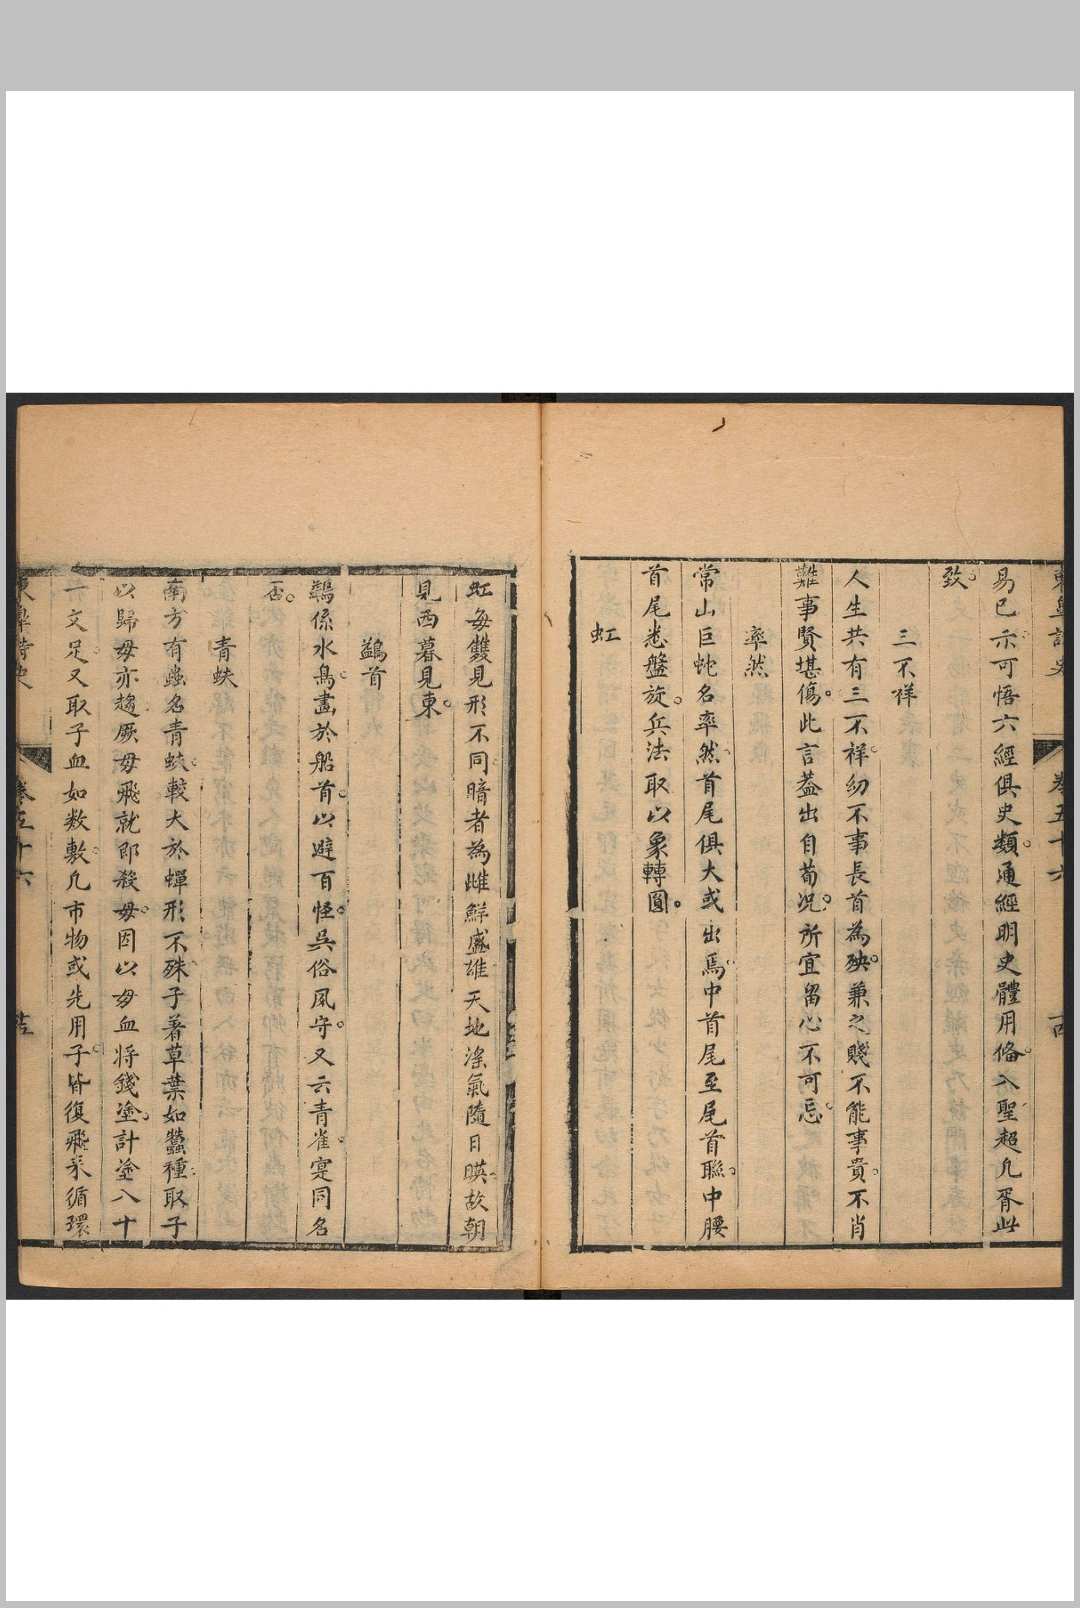 卷五十六
易已示可悟六經俱史類通經明史體用俻入聖超凡胥此
致
三不祥
人生共有三不祥幼不事長首為殃兼之賤不能事貴不肖
難事賢堪傷此言葢出自荀况所宜留心不可忘
率然
常山巨蛇名率然首尾俱大或出焉中首尾至尾首聮中腰
首尾悉盤旋兵法取以象轉圓
虹
虹每雙見形不同暗者為雌鮮盛雄天地滛氣隨日暎故朝
見西暮見東
鷁首
鷁係水鳥畫於船首以避百怪吳俗風守又云青雀寔同名
否
青蚨
南方有蟲名青蚨較大於蟬形不殊子著草葉如蠶種取子
以歸母亦趨厥母飛就即殺母因以母血將錢塗計塗八十
一文足又取子血如数敷凡市物或先用子皆復飛来循環
卷五十六